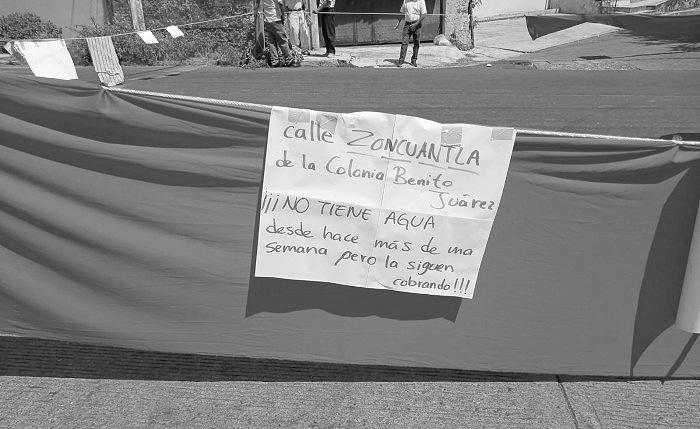 calle ZONCUANTLA
de la Colonia Benito
Juárez
¡¡¡NO TIENE AGUA
desde hace más de una
semana pero la siguen
cobrando!!!